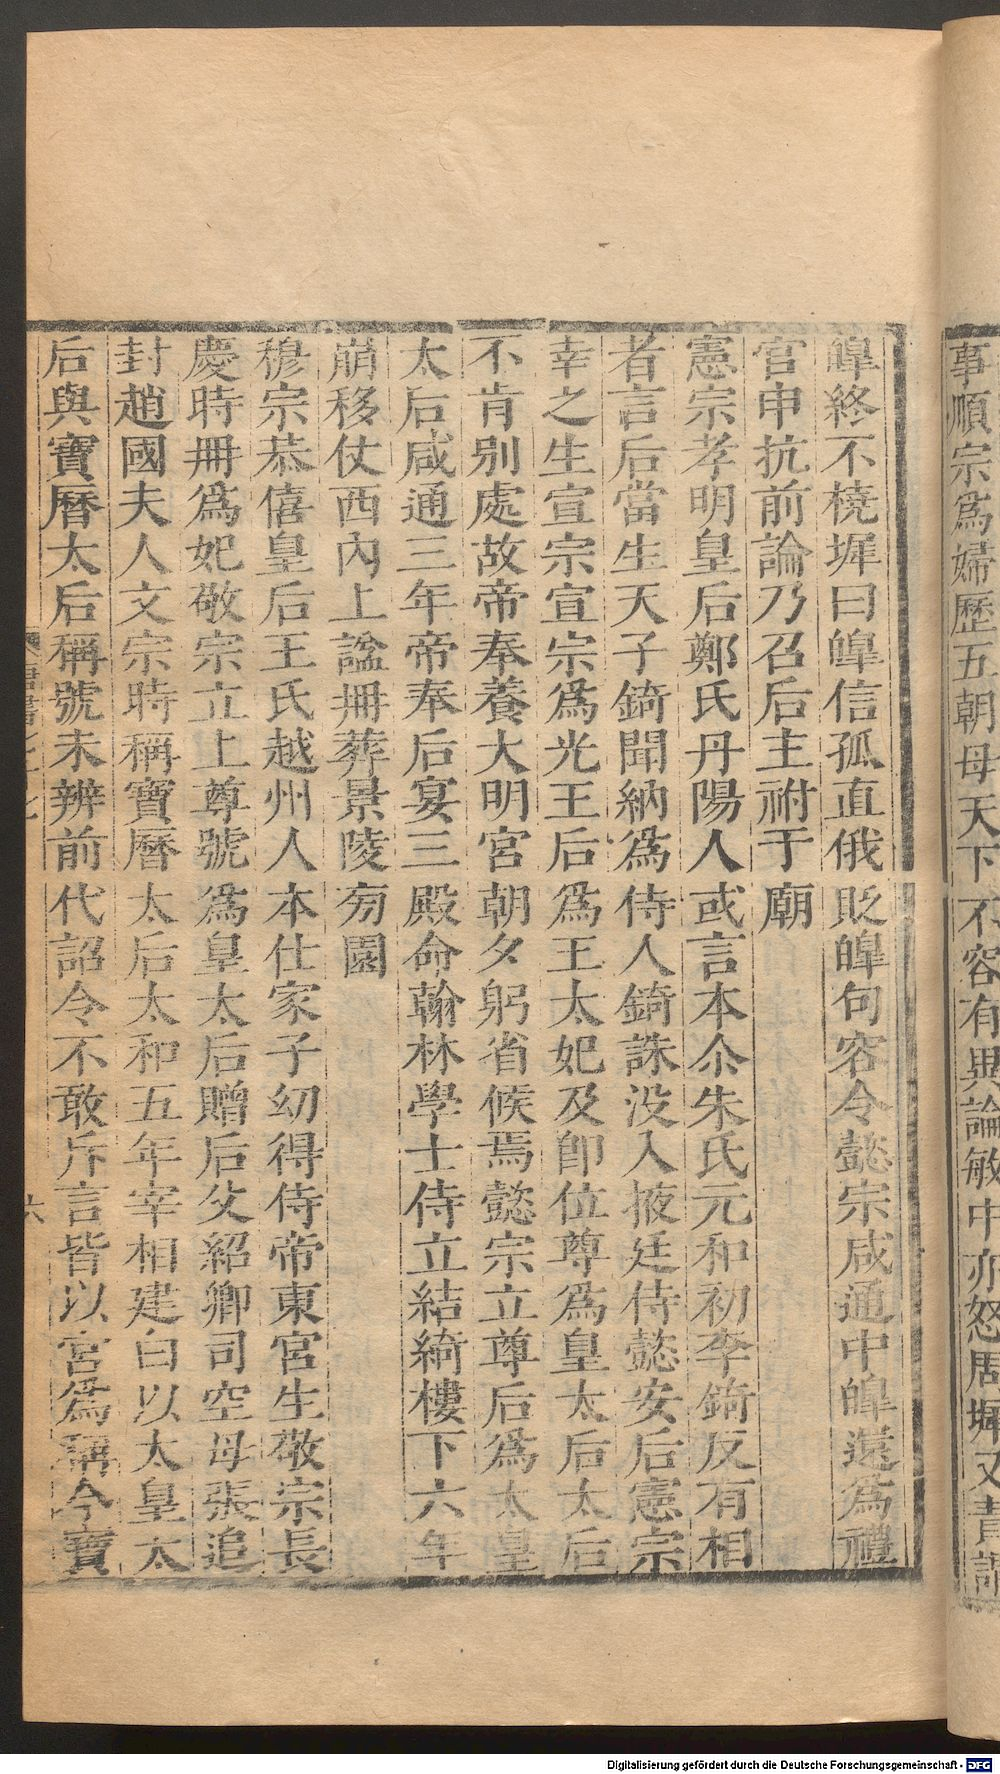 事順宗爲婦歷五朝母天下不容有異論敏中亦怒周墀又責謂
皥終不橈墀曰皥信孤直俄貶皥句容令懿宗咸通中皥還爲禮
官申抗前論乃召后主祔于廟
憲宗孝明皇后鄭氏丹陽人或言本尒朱氏元和初李錡反有相
者言后當生天子錡聞納爲侍人錡誅没入掖廷侍懿安后憲宗
幸之生宣宗宣宗爲光王后爲王太妃及卽位尊爲皇太后太后
不肯別處故帝奉養大明宮朝夕躬省候焉懿宗立尊后爲太皇
太后咸通三年帝奉后宴三殿命翰林學士侍立結綺樓下六年
崩移仗西內上諡冊葬景陵旁園
穆宗恭僖皇后王氏越州人本仕家子幼得侍帝東宮生敬宗長
慶時冊爲妃敬宗立上尊號爲皇太后贈后父紹卿司空母張追
封趙國夫人文宗時稱寶曆太后太和五年宰相建白以太皇太
后與寶曆太后稱號未辨前代詔令不敢斥言皆以宮爲稱今寶
唐書七十七
六
Digitalisierung gefördert durch die Deutsche Forschungsgemeinschaft - DFG